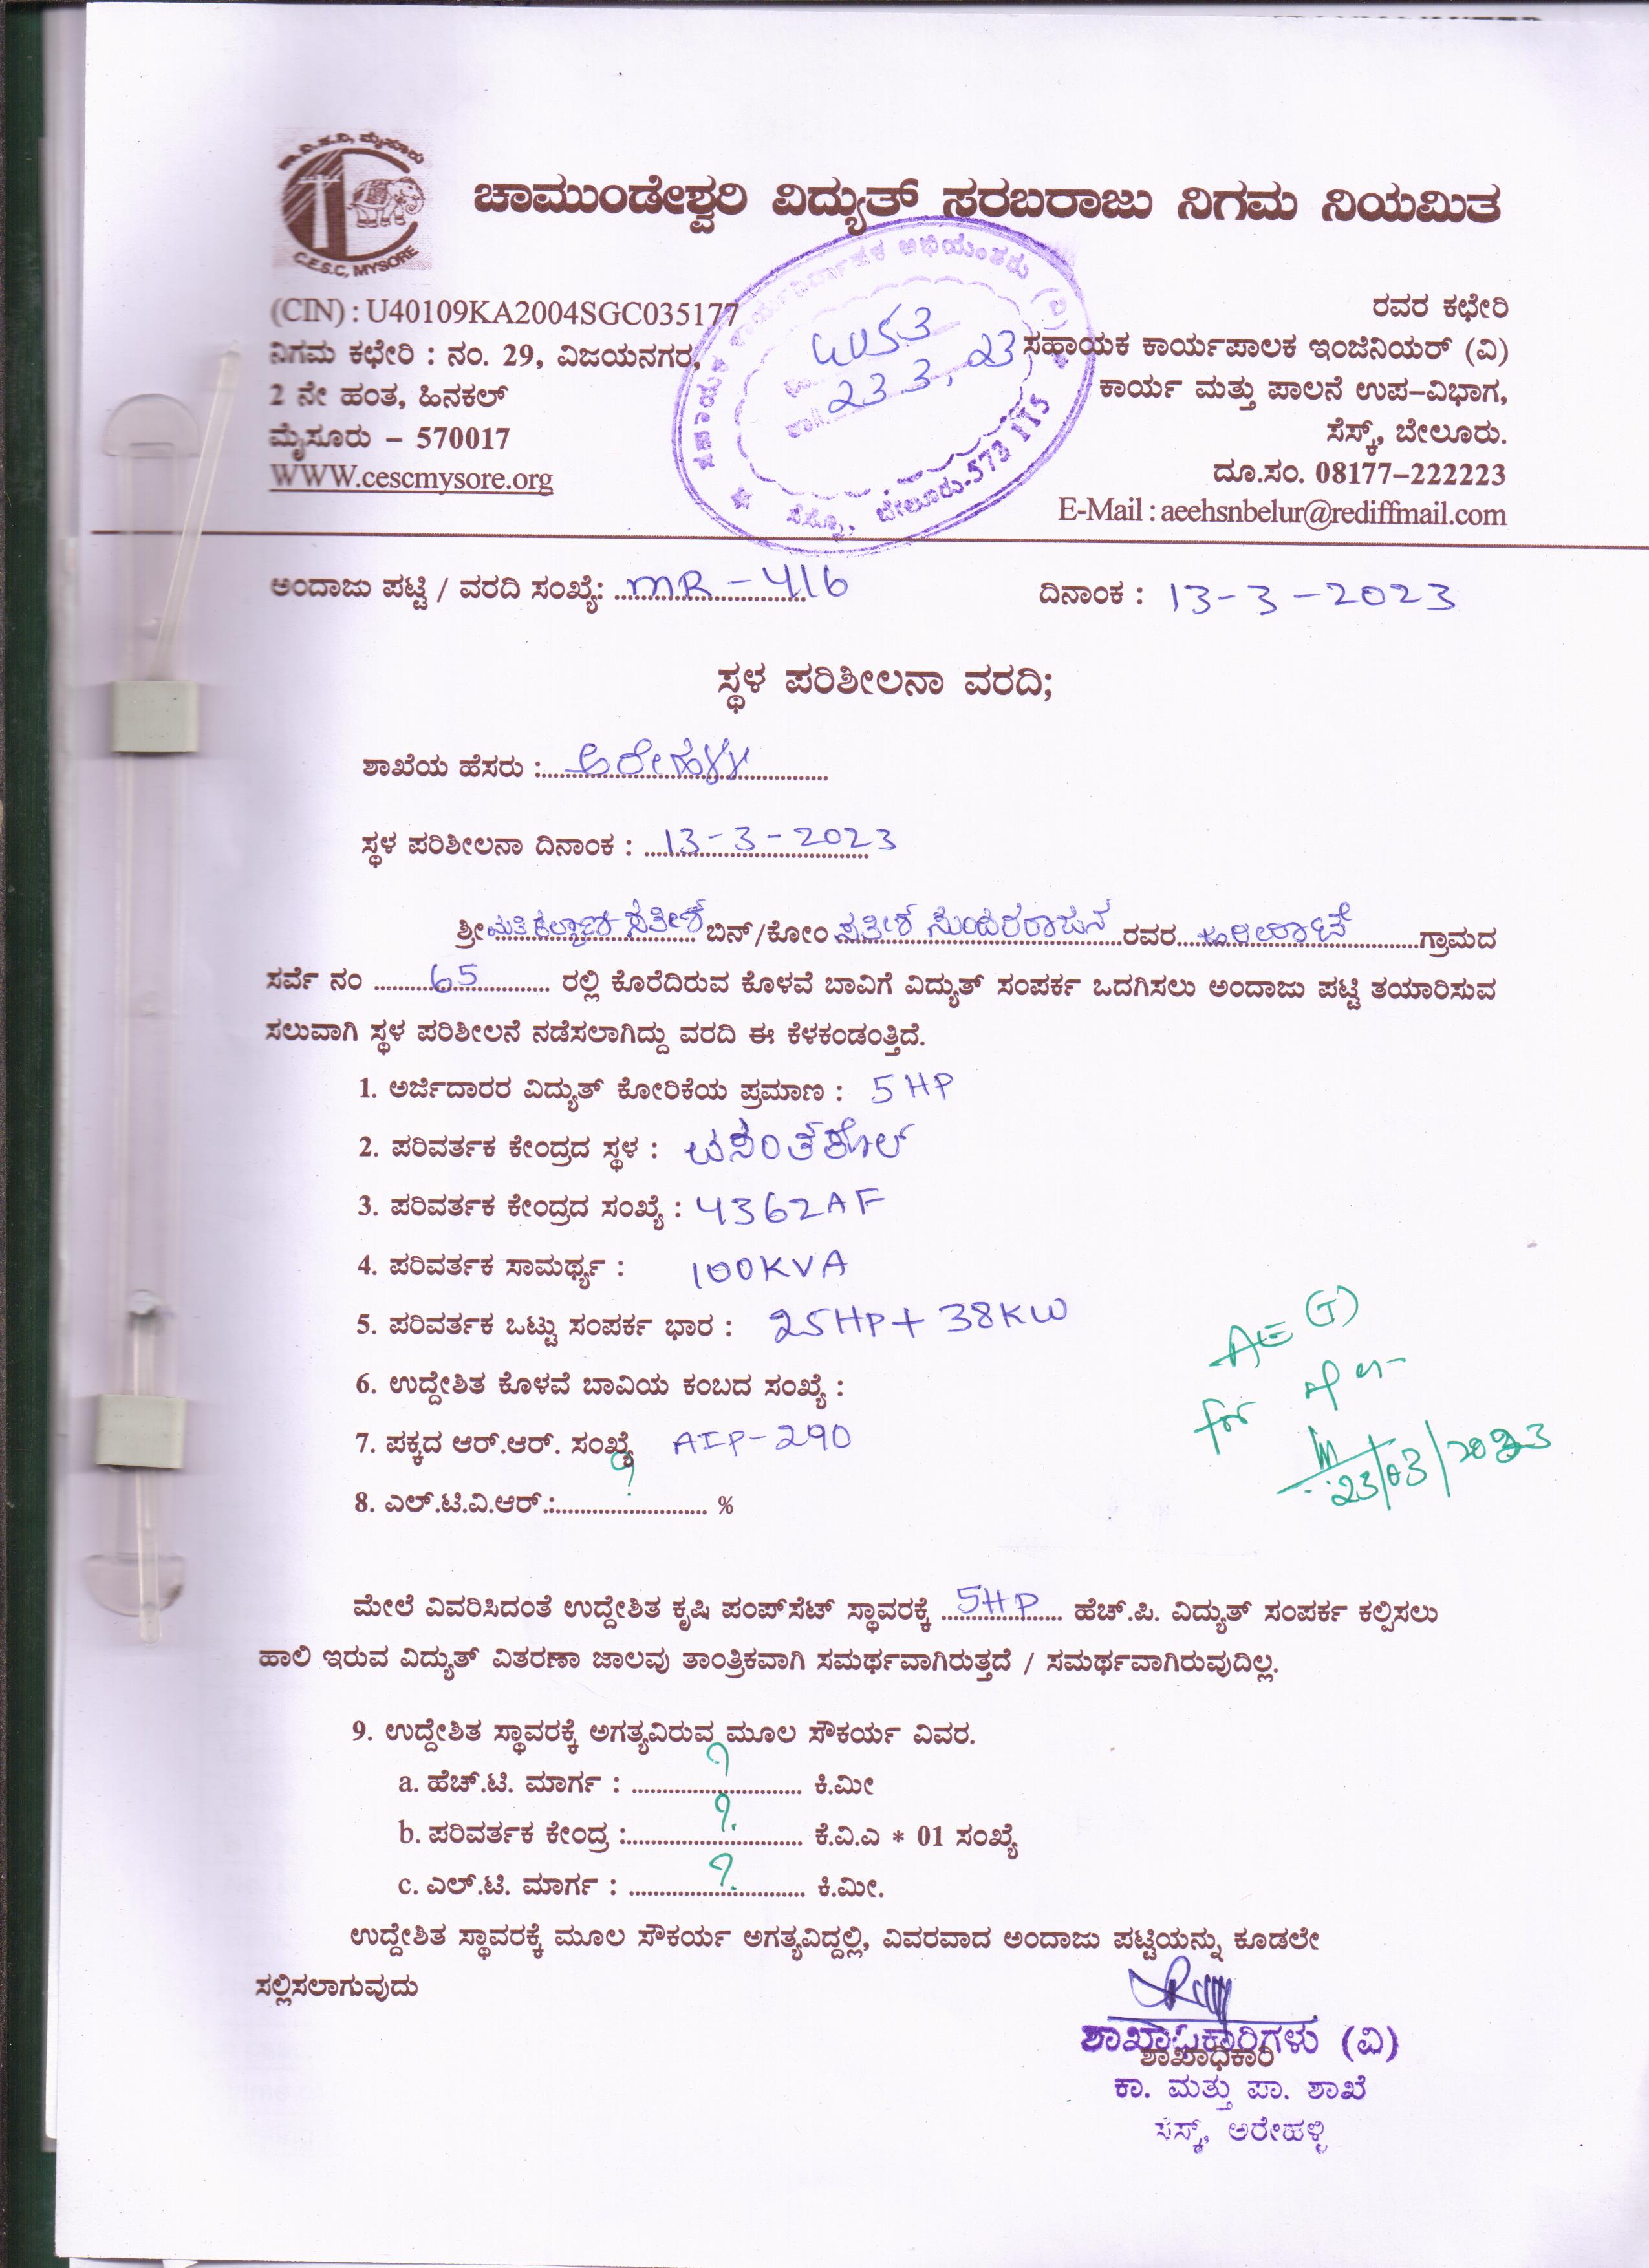 ಕಾ.ವಿ.ಸ.ನಿ, ಮೈಸೂರು
C.E.S.C, MYSORE
ಚಾಮುಂಡೇಶ್ವರಿ ವಿದ್ಯುತ್ ಸರಬರಾಜು ನಿಗಮ ನಿಯಮಿತ
(CIN) : U40109KA2004SGC035177
ನಿಗಮ ಕಛೇರಿ : ನಂ. 29, ವಿಜಯನಗರ,
2 ನೇ ಹಂತ, ಹಿನಕಲ್
ಮೈಸೂರು – 570017
WWW.cescmysore.org
4053
23.3.23
ಸೆಸ್ಕ್, ಬೇಲೂರು-573 115
ರವರ ಕಛೇರಿ
ಸಹಾಯಕ ಕಾರ್ಯಪಾಲಕ ಇಂಜಿನಿಯರ್ (ವಿ)
ಕಾರ್ಯ ಮತ್ತು ಪಾಲನೆ ಉಪ–ವಿಭಾಗ,
ಸೆಸ್ಕ್, ಬೇಲೂರು.
ದೂ.ಸಂ. 08177–222223
E-Mail : aeehsnbelur@rediffmail.com
ಅಂದಾಜು ಪಟ್ಟಿ / ವರದಿ ಸಂಖ್ಯೆ: MR – 416 ದಿನಾಂಕ : 13-3-2023
ಸ್ಥಳ ಪರಿಶೀಲನಾ ವರದಿ;
ಶಾಖೆಯ ಹೆಸರು : ಅರೇಹಳ್ಳಿ
ಸ್ಥಳ ಪರಿಶೀಲನಾ ದಿನಾಂಕ : 13-3-2023
ಶ್ರೀಮತಿ ಕಲ್ಯಾಣಿ ಸತೀಶ್ ಬಿನ್/ಕೋಂ ಸತೀಶ ಸುಂದರರಾಜನ ರವರ ಗ್ರಾಮದ
ಸರ್ವೆ ನಂ 65 ರಲ್ಲಿ ಕೊರೆದಿರುವ ಕೊಳವೆ ಬಾವಿಗೆ ವಿದ್ಯುತ್ ಸಂಪರ್ಕ ಒದಗಿಸಲು ಅಂದಾಜು ಪಟ್ಟಿ ತಯಾರಿಸುವ
ಸಲುವಾಗಿ ಸ್ಥಳ ಪರಿಶೀಲನೆ ನಡೆಸಲಾಗಿದ್ದು ವರದಿ ಈ ಕೆಳಕಂಡಂತ್ತಿದೆ.
1. ಅರ್ಜಿದಾರರ ವಿದ್ಯುತ್ ಕೋರಿಕೆಯ ಪ್ರಮಾಣ : 5 HP
2. ಪರಿವರ್ತಕ ಕೇಂದ್ರದ ಸ್ಥಳ :
3. ಪರಿವರ್ತಕ ಕೇಂದ್ರದ ಸಂಖ್ಯೆ : 4362AF
4. ಪರಿವರ್ತಕ ಸಾಮರ್ಥ್ಯ : 100KVA
5. ಪರಿವರ್ತಕ ಒಟ್ಟು ಸಂಪರ್ಕ ಭಾರ : 25HP + 38KW
6. ಉದ್ದೇಶಿತ ಕೊಳವೆ ಬಾವಿಯ ಕಂಬದ ಸಂಖ್ಯೆ :
7. ಪಕ್ಕದ ಆರ್.ಆರ್. ಸಂಖ್ಯೆ AIP-290
8. ಎಲ್.ಟಿ.ವಿ.ಆರ್.: ? %
AE (T)
for
23/03/2023
ಮೇಲೆ ವಿವರಿಸಿದಂತೆ ಉದ್ದೇಶಿತ ಕೃಷಿ ಪಂಪ್‌ಸೆಟ್ ಸ್ಥಾವರಕ್ಕೆ 5HP ಹೆಚ್.ಪಿ. ವಿದ್ಯುತ್ ಸಂಪರ್ಕ ಕಲ್ಪಿಸಲು
ಹಾಲಿ ಇರುವ ವಿದ್ಯುತ್ ವಿತರಣಾ ಜಾಲವು ತಾಂತ್ರಿಕವಾಗಿ ಸಮರ್ಥವಾಗಿರುತ್ತದೆ / ಸಮರ್ಥವಾಗಿರುವುದಿಲ್ಲ.
9. ಉದ್ದೇಶಿತ ಸ್ಥಾವರಕ್ಕೆ ಅಗತ್ಯವಿರುವ ಮೂಲ ಸೌಕರ್ಯ ವಿವರ.
a. ಹೆಚ್.ಟಿ. ಮಾರ್ಗ : ? ಕಿ.ಮೀ
b. ಪರಿವರ್ತಕ ಕೇಂದ್ರ : ? ಕೆ.ವಿ.ಎ * 01 ಸಂಖ್ಯೆ
c. ಎಲ್.ಟಿ. ಮಾರ್ಗ : ? ಕಿ.ಮೀ.
ಉದ್ದೇಶಿತ ಸ್ಥಾವರಕ್ಕೆ ಮೂಲ ಸೌಕರ್ಯ ಅಗತ್ಯವಿದ್ದಲ್ಲಿ, ವಿವರವಾದ ಅಂದಾಜು ಪಟ್ಟಿಯನ್ನು ಕೂಡಲೇ
ಸಲ್ಲಿಸಲಾಗುವುದು
ಶಾಖಾಧಿಕಾರಿಗಳು (ವಿ)
ಶಾಖಾಧಿಕಾರಿ
ಕಾ. ಮತ್ತು ಪಾ. ಶಾಖೆ
ಸೆಸ್ಕ್, ಅರೇಹಳ್ಳಿ